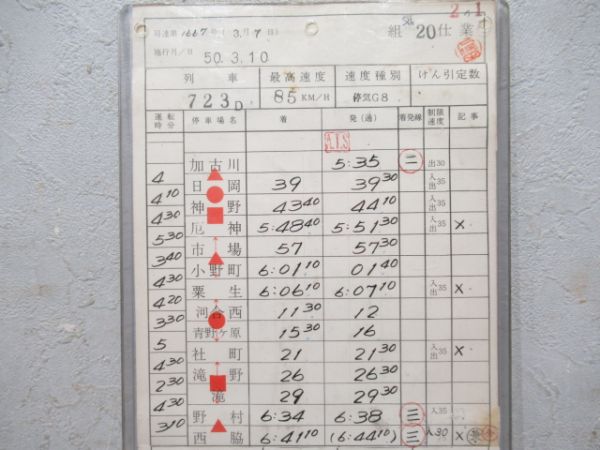 2の1
局達第1667号(3月7日)
施行月/日 50.3.10
組 20仕業
列車 最高速度 速度種別 けん引定数
723D 85KM/H 停気G8
運転時分 停車場名 着 発(通) 着発線 制限速度 記事
A.T.S
加古川 5:35 二 出30
4
日岡 39 39 30 入出35
4 10
神野 43 40 44 10
4 30
厄神 5:48 40 5:51 30 入出35 ×
5 30
市場 57 57 30
3 40
小野町 6:01 10 01 40
4 30
粟生 6:06 10 6:07 10 入出35 ×
4 20
河合西 11 30 12
3 30
青野ヶ原 15 30 16
5
社町 21 21 30 入出35 ×
4 30
滝野 26 26 30
2 30
滝 29 29 30
4 30
野村 6:34 6:38 三 入35
3 10
西脇 6:41 10 (6:44 10) 三 入30 ×